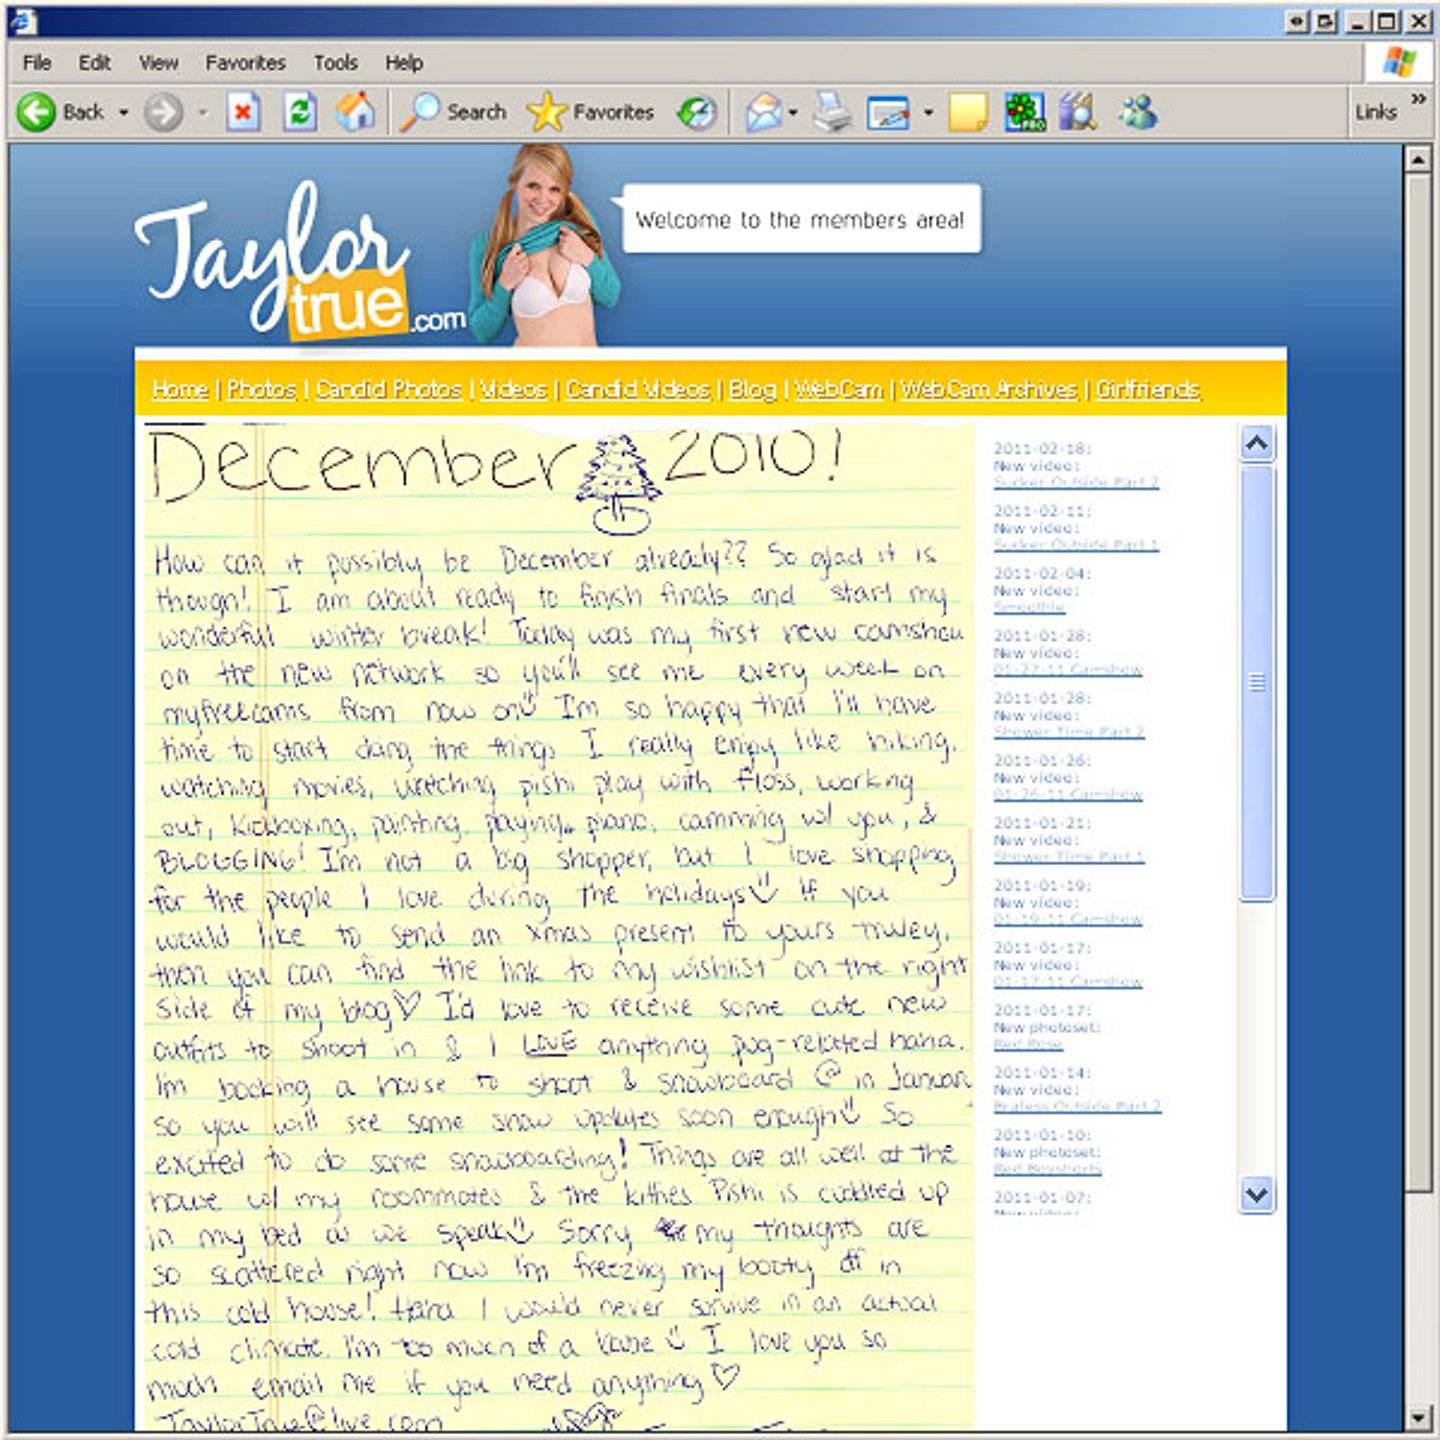 File Edit View Favorites Tools Help
Back Search Favorites Links »
Taylor
true.com
Welcome to the members area!
Home | Photos | Candid Photos | Videos | Candid Videos | Blog | WebCam | WebCam Archives | Girlfriends
December 2010!
How can it possibly be December already?? So glad it is
though! I am about ready to finish finals and start my
wonderful winter break! Today was my first new camshow
on the new network so you'll see me every week on
myfreecams from now on I'm so happy that I'll have
time to start doing the things I really enjoy like hiking,
watching movies, watching pishi play with floss, working
out, kickboxing, painting, playing piano, camming w/ you, &
BLOGGING! I'm not a big shopper, but I love shopping
for the people I love during the holidays If you
would like to send an xmas present to yours truley,
then you can find the link to my wishlist on the right
side of my blog♡ I'd love to receive some cute new
outfits to shoot in & I LOVE anything pug-related haha.
I'm booking a house to shoot & snowboard @ in January
so you will see some snow updates soon enough So
excited to do some snowboarding! Things are all well at the
house w/ my roommates & the kitties Pishi is cuddled up
in my bed as we speak Sorry my thoughts are
so scattered right now I'm freezing my booty off in
this cold house! Haha I would never survive in an actual
cold climate. I'm too much of a I love you so
much email me if you need anything♡
TaylorTrue@live.com
2011-02-18:
New video:
Sucker Outside Part 2
2011-02-11:
New video:
Sucker Outside Part 1
2011-02-04:
New video:
Smoothie
2011-01-28:
New video:
01-27-11 Camshow
2011-01-28:
New video:
Shower Time Part 2
2011-01-26:
New video:
01-26-11 Camshow
2011-01-21:
New video:
Shower Time Part 1
2011-01-19:
New video:
01-19-11 Camshow
2011-01-17:
New video:
01-17-11 Camshow
2011-01-17:
New photoset:
Red Rose
2011-01-14:
New video:
Braless Outside Part 2
2011-01-10:
New photoset:
Red Boyshorts
2011-01-07:
New video: